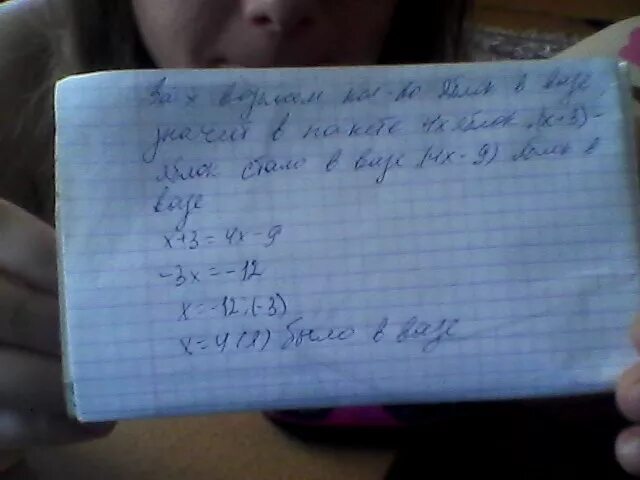 За x возьмём кол-во яблок в вазе,
значит в пакете 4x яблок. (x+3)-
яблок стало в вазе (4x-9) было в
вазе
x+3=4x-9
-3x=-12
x=-12:(-3)
x=4(я) было в вазе